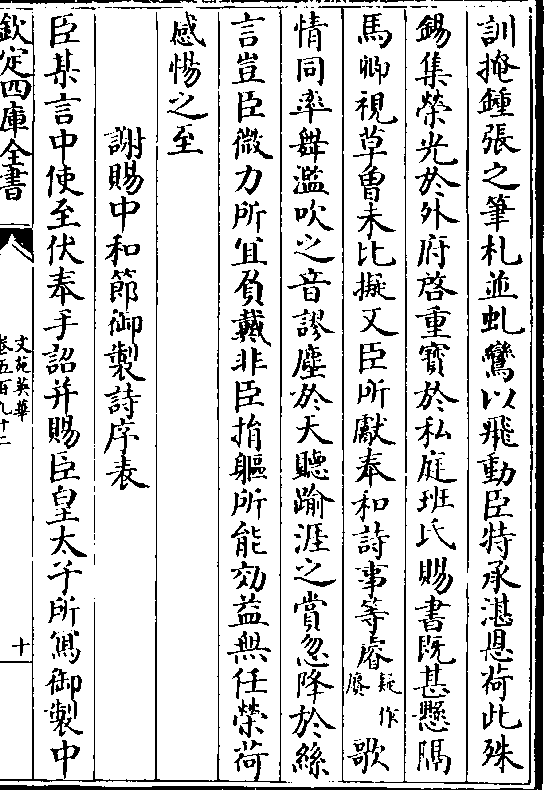 訓掩鍾張之筆札並虬鸞以飛動臣特承湛恩荷此殊
錫集榮光於外府啓重寳於私庭班氏賜書既甚懸隔
馬卿視草曾未比擬又臣所獻奉和詩事等睿疑作賡歌
情同率舞濫吹之音謬塵於天聽踰涯之賞忽降於絲
言豈臣微力所宜負戴非臣捐軀所能効益無任榮荷
感惕之至
謝賜中和節御製詩序表
臣某言中使至伏奉手詔并賜臣皇太子所寫御製中
欽定四庫全書
文苑英華
卷五百九十二
十